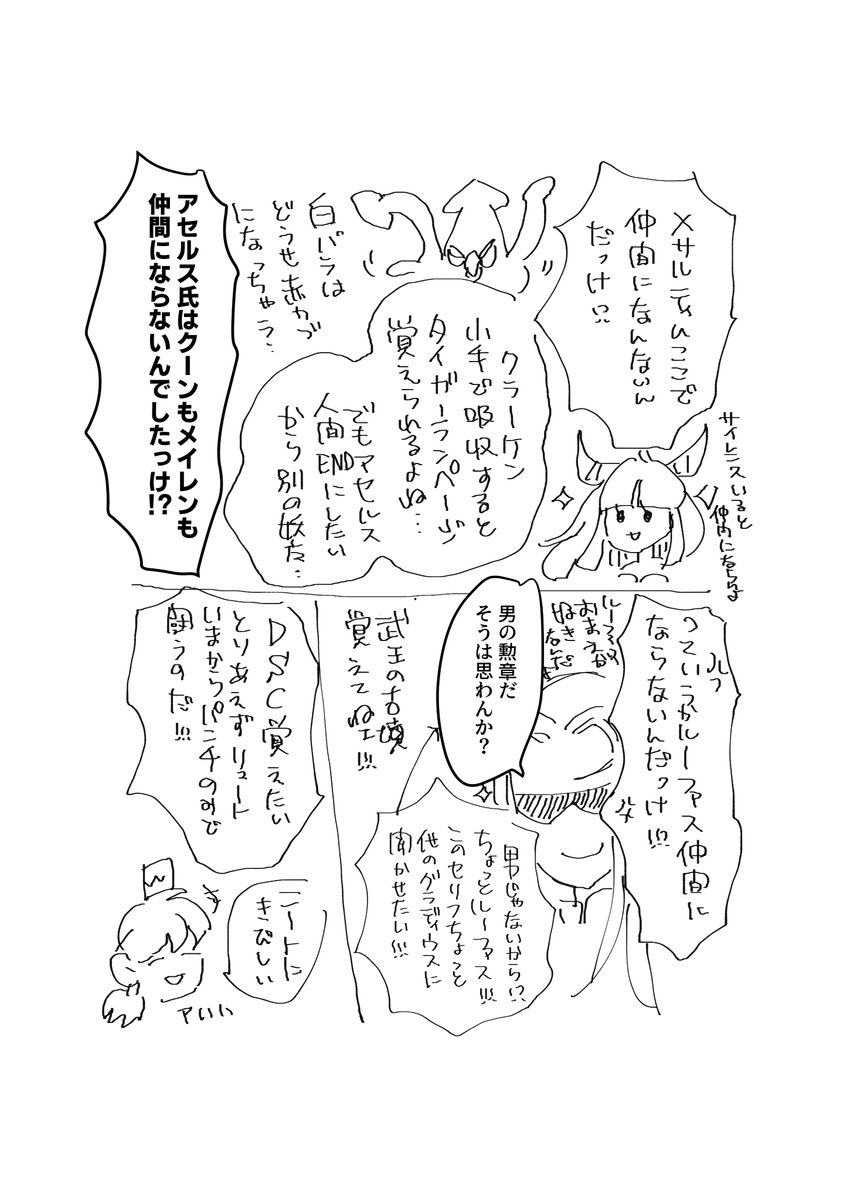 メサルティムここで
仲間になんないん
だっけ!?
サイレンスいると
仲間にならんよ
クラーケン
小手で吸収すると
タイガーランページ
覚えられるよね…
でもアセルス
人間ENDにしたい
から別の妖方…
白バラは
どうせ赤カブ
になっちゃう…
アセルス氏はクーンもメイレンも
仲間にならないんでしたっけ!?
っていうかルーファス仲間に
ならないんだっけ!!!
ルーファス
おまえが
好き
なんだよ
男の勲章だ
そうは思わんか?
男じゃないから!?
ちょっとルーファス!!!
このセリフちょっと
他のグラディウスに
聞かせたい!!!
武王の古墳
覚えてねェ!!!
DSC覚えたい
とりあえずリュート
いまからパンチのみで
闘うのだ!!!
ニートに
きびしい